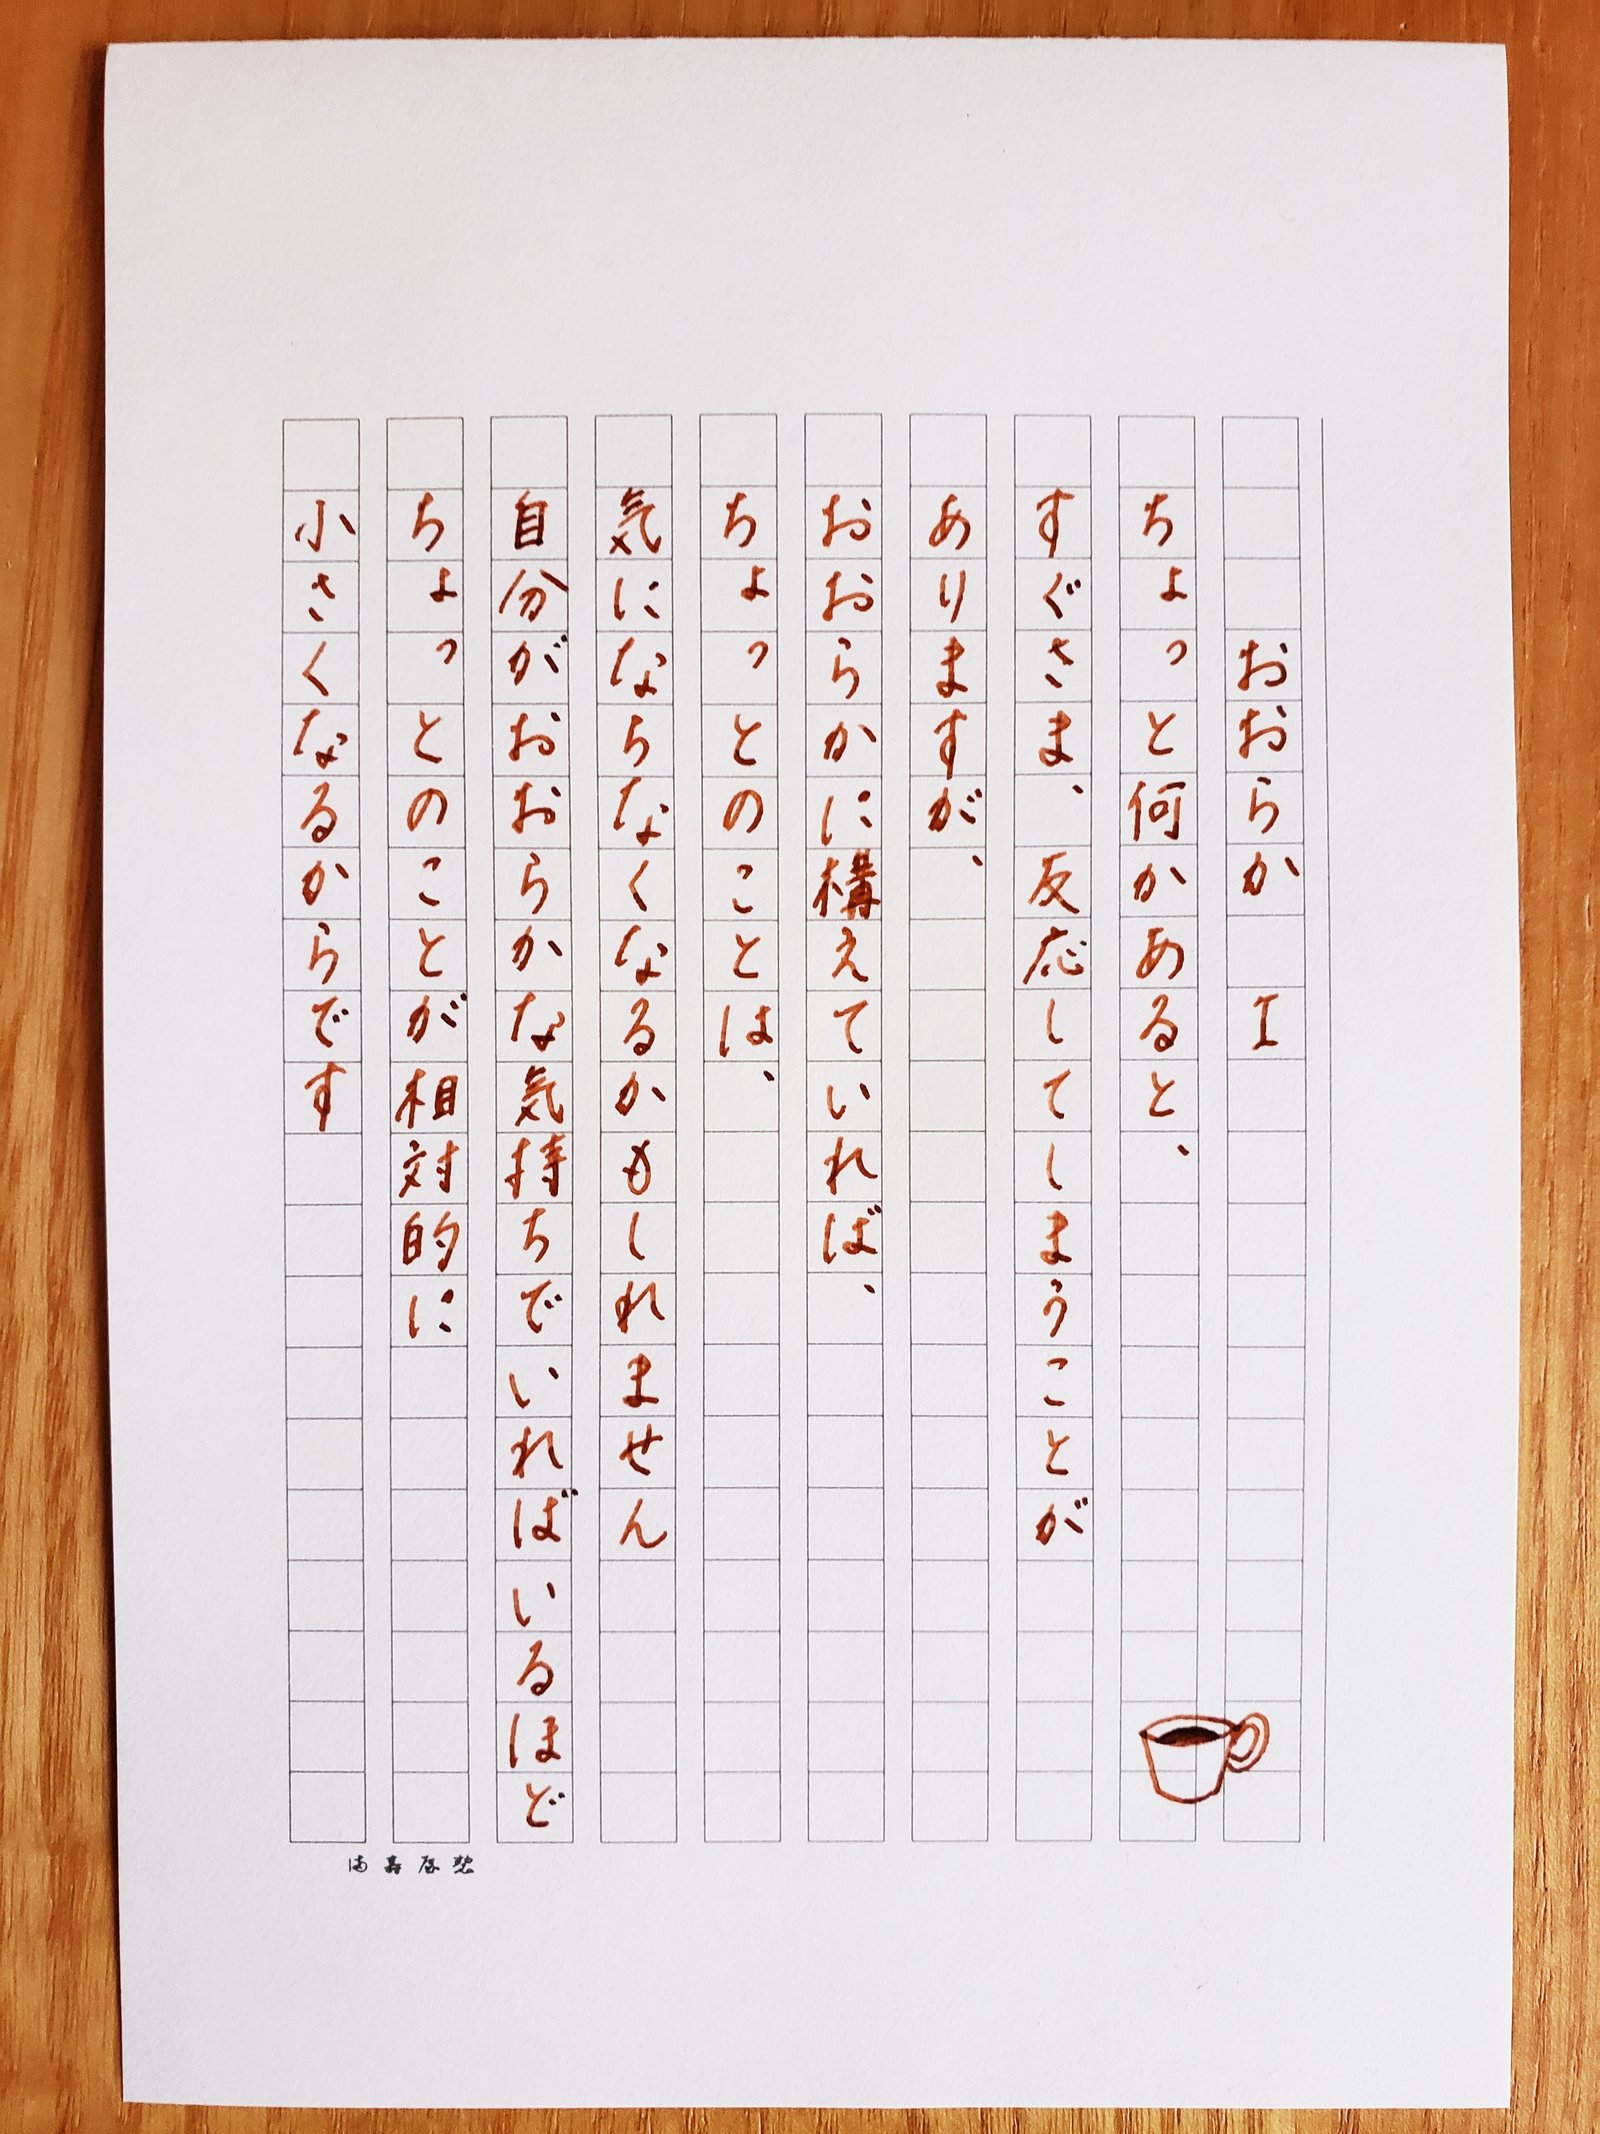 おおらか I
ちょっと何かあると、
すぐさま、反応してしまうことが
ありますが、
おおらかに構えていれば、
ちょっとのことは、
気にならなくなるかもしれません
自分がおおらかな気持ちでいればいるほど
ちょっとのことが相対的に
小さくなるからです
満寿屋